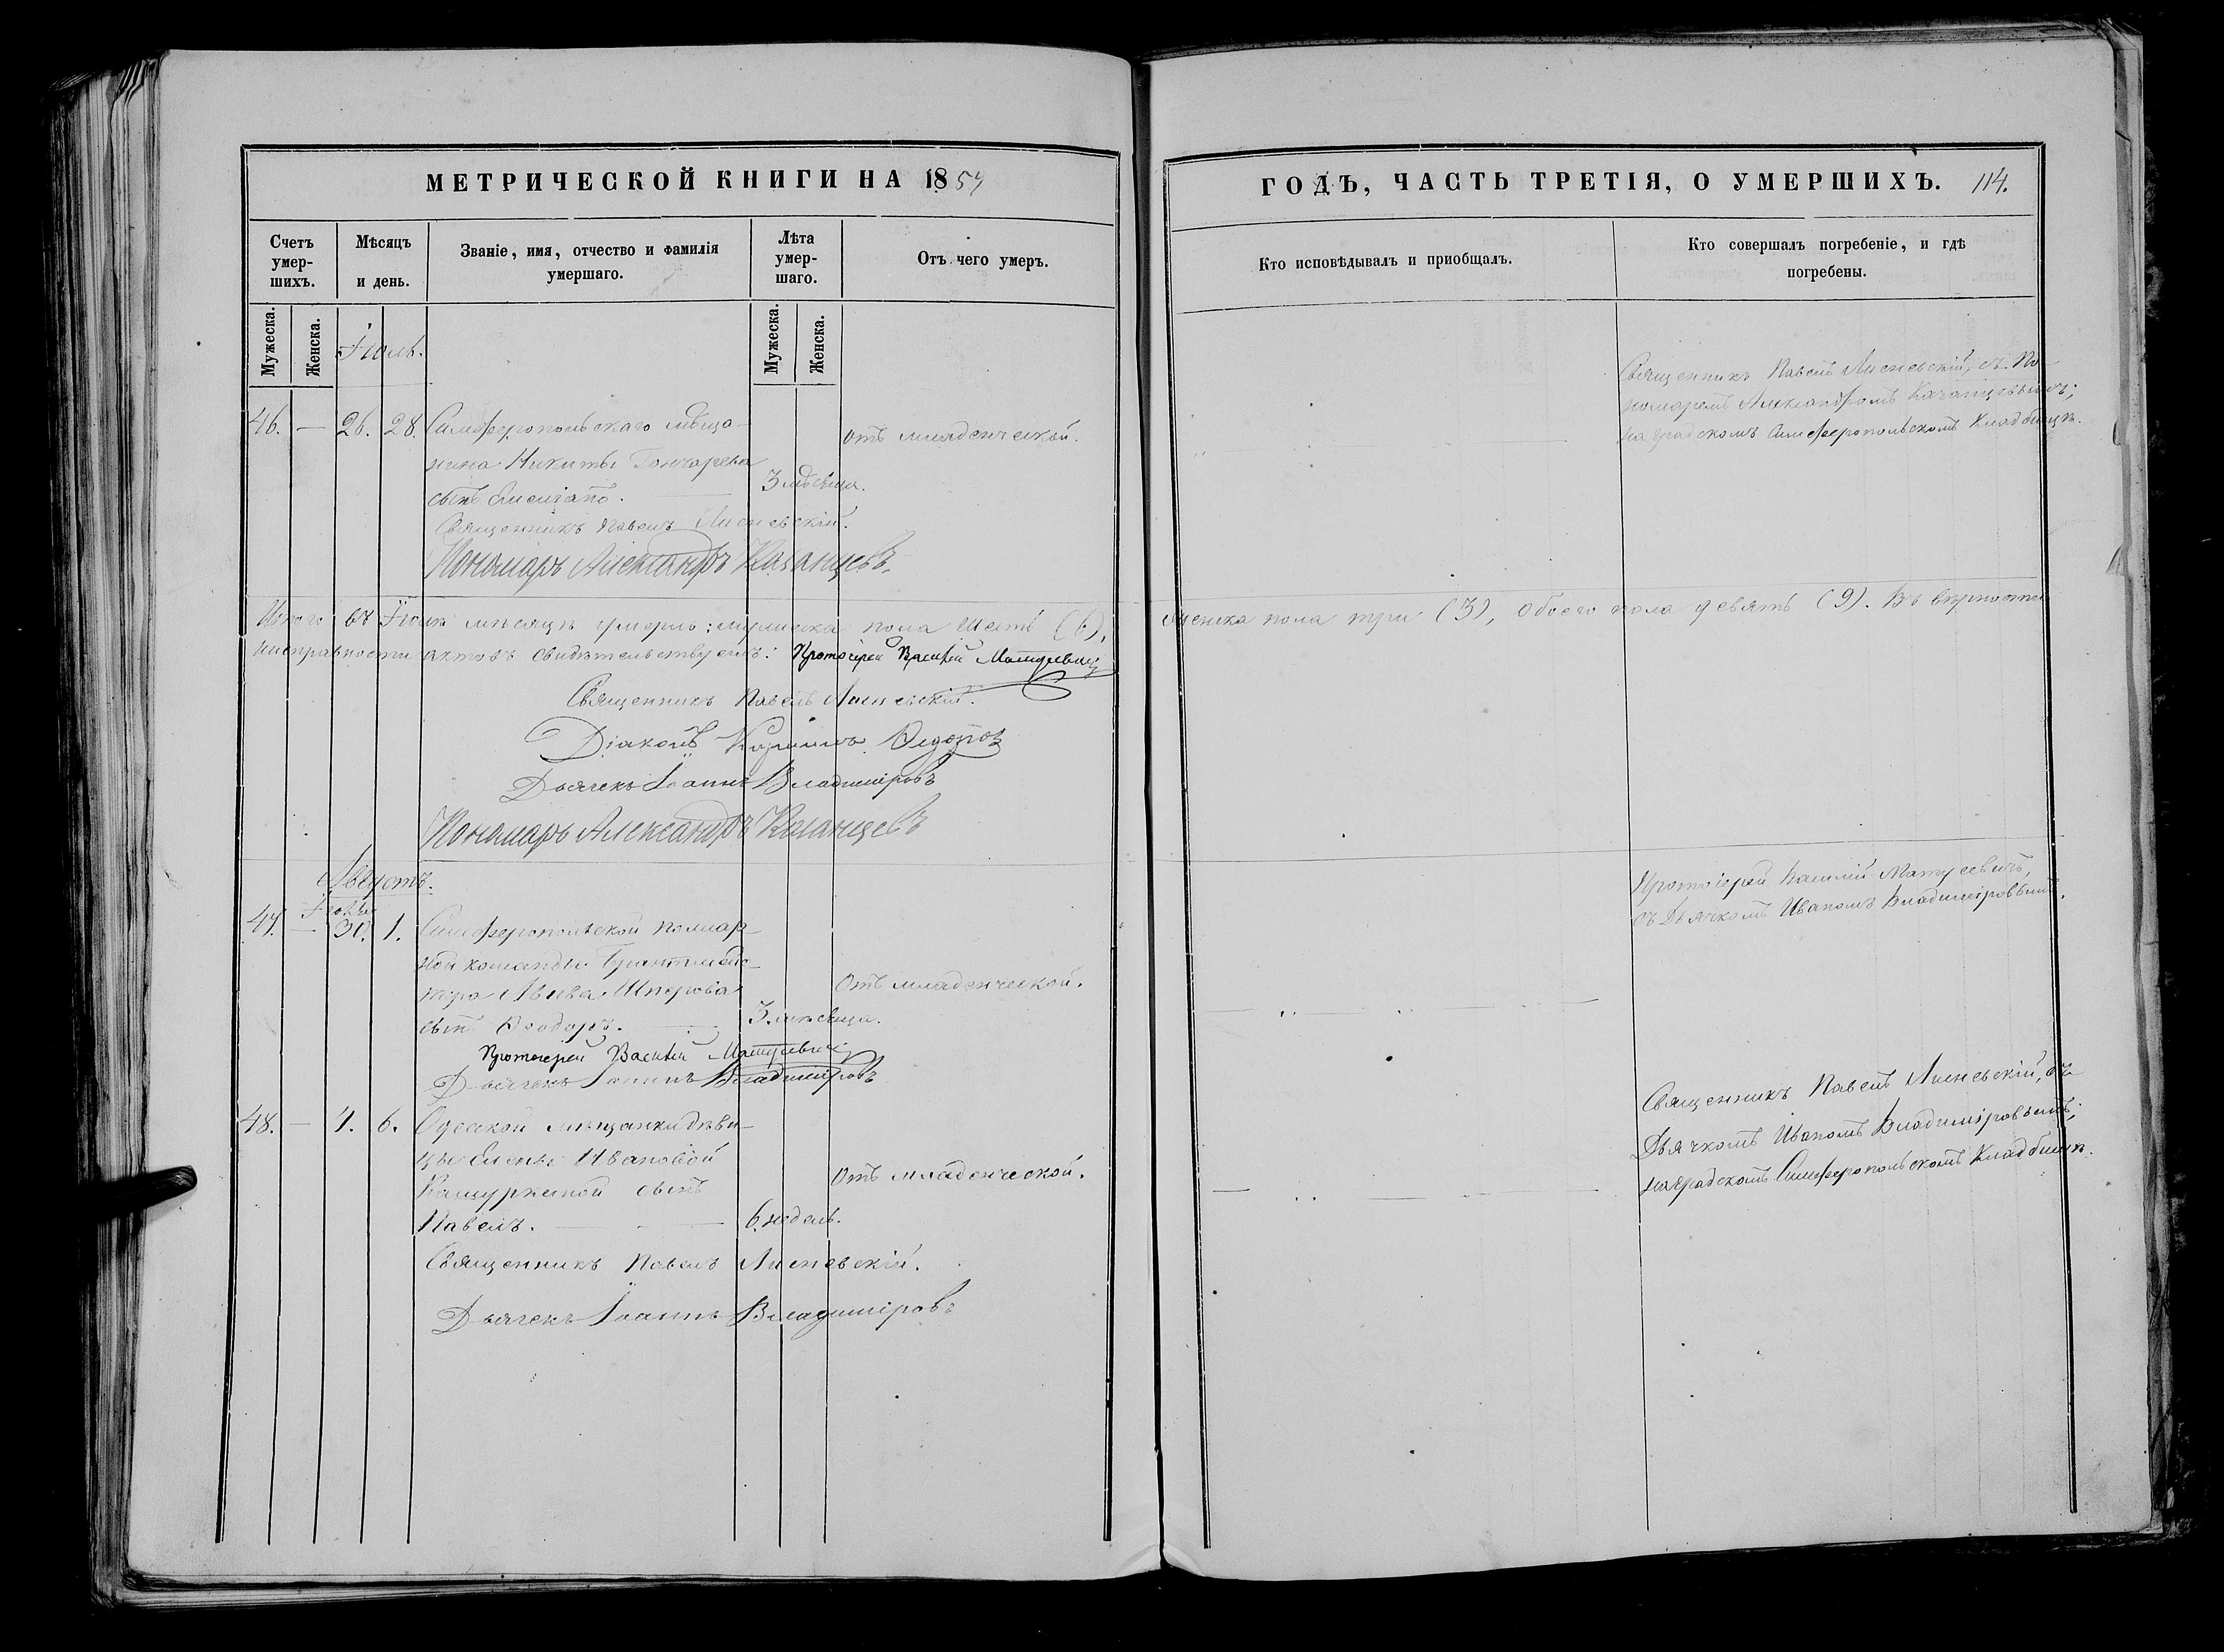 МЕТРИЧЕСКОЙ КНИГИ НА 1854
ГОДЪ, ЧАСТЬ ТРЕТІЯ, О УМЕРШИХЪ. 114.
Счетъ умер-
шихъ.
Мѣсяцъ
и день.
Званіе, имя, отчество и фамилія
умершаго.
Лѣта
умер-
шаго.
Отъ чего умеръ.
Кто исповѣдывалъ и приобщалъ.
Кто совершалъ погребеніе, и гдѣ
погребены.
Мужеска.
Женска.
Іюль.
Мужеска.
Женска.
46. — 26. 28. Симферопольскаго мѣща-
нина Никиты Гончарева
сынъ
3 мѣсяца.
отъ младенческой.
Священникъ Павелъ
Пономарь Александръ Казанцевъ.
Священникъ Павелъ съ По-
номаремъ Александромъ Казанцевымъ;
на градскомъ Симферопольскомъ Кладбищѣ.
Итого въ Іюлѣ мѣсяцѣ умерло: мужеска пола шесть (6),
женска пола три (3), обоего пола девять (9). Въ вѣрности
исправности актовъ свидѣтельствуемъ: Протоіерей Василій Матусевичъ
Священникъ Павелъ
Діаконъ
Дьячекъ Іоаннъ Владиміровъ
Пономарь Александръ Казанцевъ
Августъ.
Іюля
47. — 30. 1. Симферопольской пожар-
ной команды Брантмей-
стра
сынъ Ѳеодоръ.
3 мѣсяца.
Отъ младенческой.
Протоіерей Василій Матусевичъ
Дьячекъ Іоаннъ Владиміровъ
Протоіерей Василій Матусевичъ,
съ Дьячкомъ Иваномъ Владиміровымъ.
48. — 4. 6. Одесской мѣщанки дѣви-
цы Елены Ивановой
сынъ
Павелъ.
6 недель.
Отъ младенческой.
Священникъ Павелъ
Дьячекъ Іоаннъ Владиміровъ
Священникъ Павелъ съ
Дьячкомъ Иваномъ Владиміровымъ;
на градскомъ Симферопольскомъ Кладбищѣ.